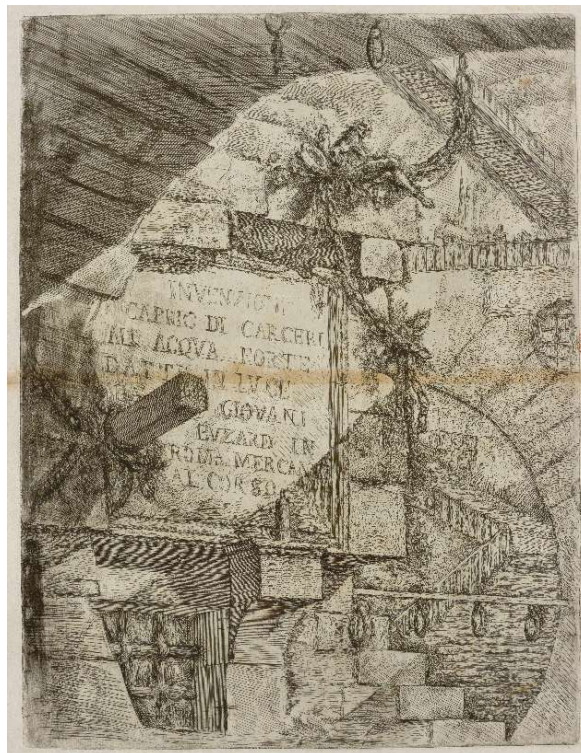 INVENZION
CAPRIC DI CARCERI
ALL ACQVA FORTE
DATTE IN LVCE
GIOVANI
BVZARD IN
ROMA MERCAN
AL CORSO